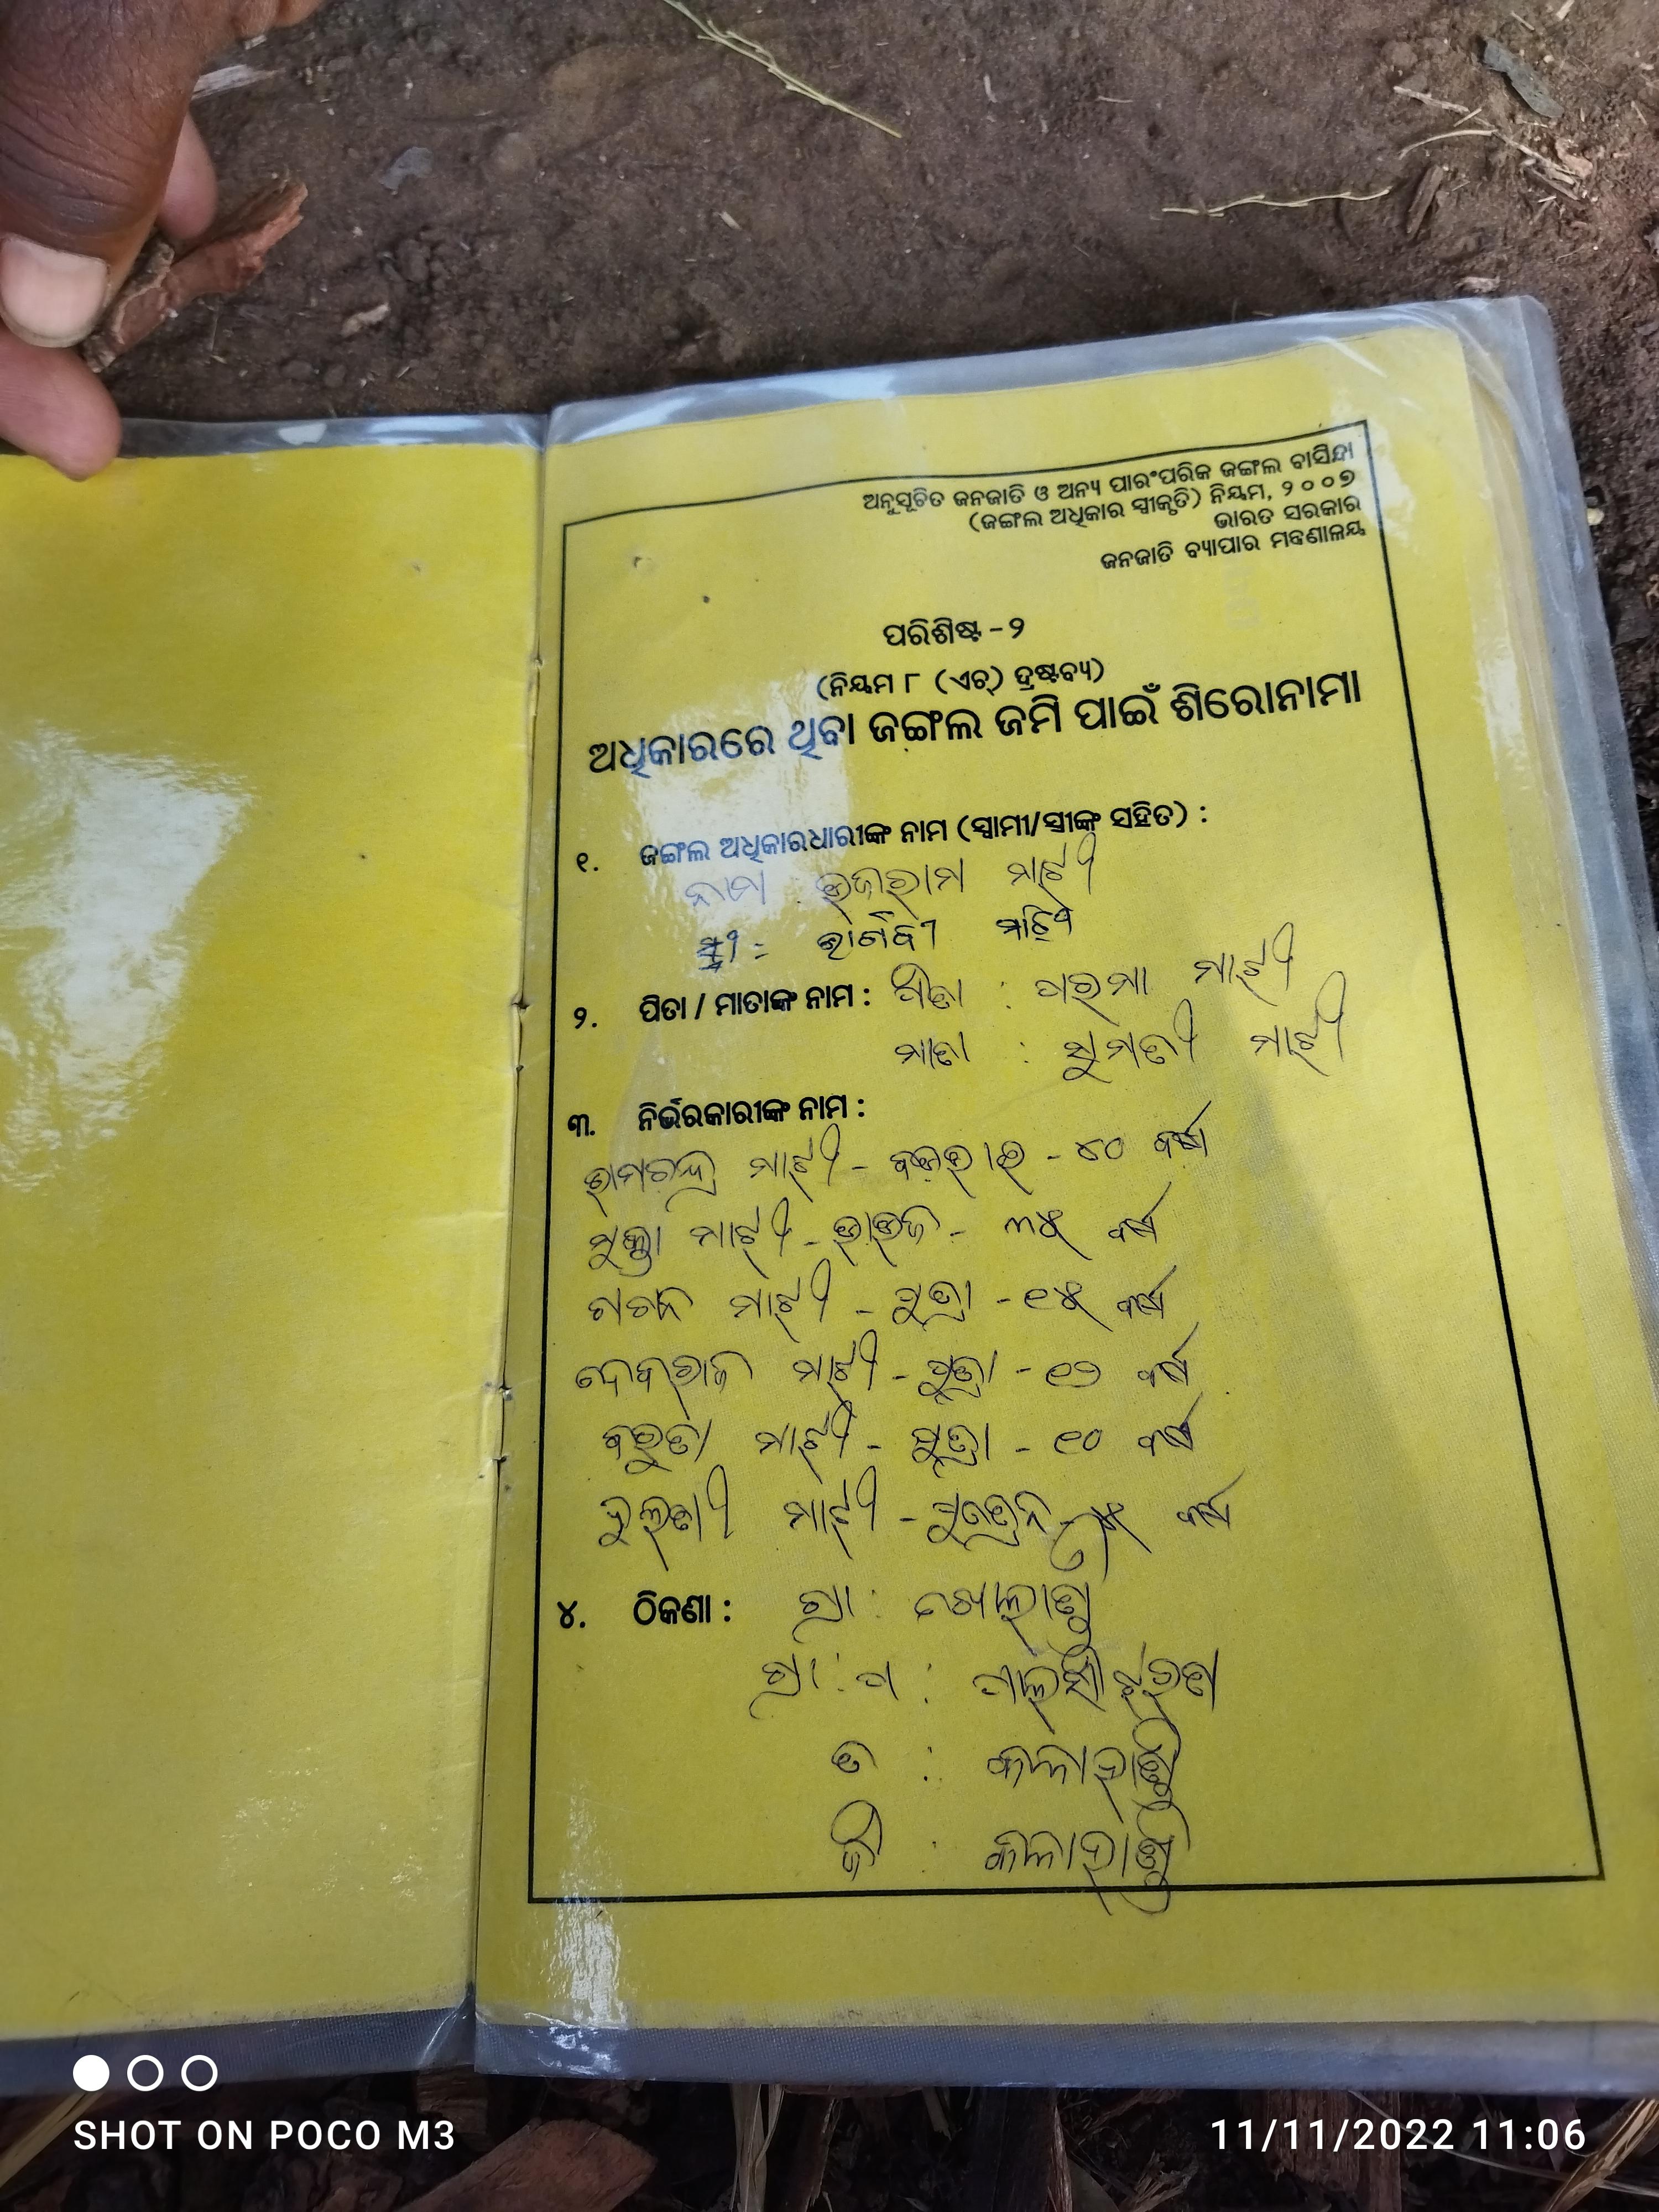 ଅନୁସୂଚିତ ଜନଜାତି ଓ ଅନ୍ୟ ପାରଂପରିକ ଜଙ୍ଗଲ ବାସିନ୍ଦା
(ଜଙ୍ଗଲ ଅଧିକାର ସ୍ୱୀକୃତି) ନିୟମ, ୨୦୦୭
ଭାରତ ସରକାର
ଜନଜାତି ବ୍ୟାପାର ମନ୍ତ୍ରଣାଳୟ
ପରିଶିଷ୍ଟ - ୨
(ନିୟମ ୮ (ଏଚ୍) ଦ୍ରଷ୍ଟବ୍ୟ)
ଅଧିକାରରେ ଥିବା ଜଙ୍ଗଲ ଜମି ପାଇଁ ଶିରୋନାମା
୧. ଜଙ୍ଗଲ ଅଧିକାରଧାରୀଙ୍କ ନାମ (ସ୍ୱାମୀ/ସ୍ତ୍ରୀଙ୍କ ସହିତ) :
ନାମ : ମାଝୀ
ସ୍ତ୍ରୀ : ମାଝି
୨. ପିତା / ମାତାଙ୍କ ନାମ : ପିତା : ମାଝୀ
ମାତା : ସୁମତୀ ମାଝୀ
୩. ନିର୍ଭରକାରୀଙ୍କ ନାମ :
ରାମଚନ୍ଦ୍ର ମାଝୀ - - ୪୦ ବର୍ଷ
ମାଝୀ - ଭାଉଜ - ୩୫ ବର୍ଷ
ଗଗନ ମାଝୀ - ପୁତ୍ରା - ୧୫ ବର୍ଷ
ଦେବରାଜ ମାଝୀ - ପୁତ୍ରା - ୧୨ ବର୍ଷ
ମାଝୀ - ପୁତ୍ରା - ୧୦ ବର୍ଷ
ମାଝୀ - ବର୍ଷ
୪. ଠିକଣା : ଗ୍ରା :
ଗ୍ରା : ପ :
ତ : କଳାହାଣ୍ଡି
ଜି : କଳାହାଣ୍ଡି
SHOT ON POCO M3
11/11/2022 11:06